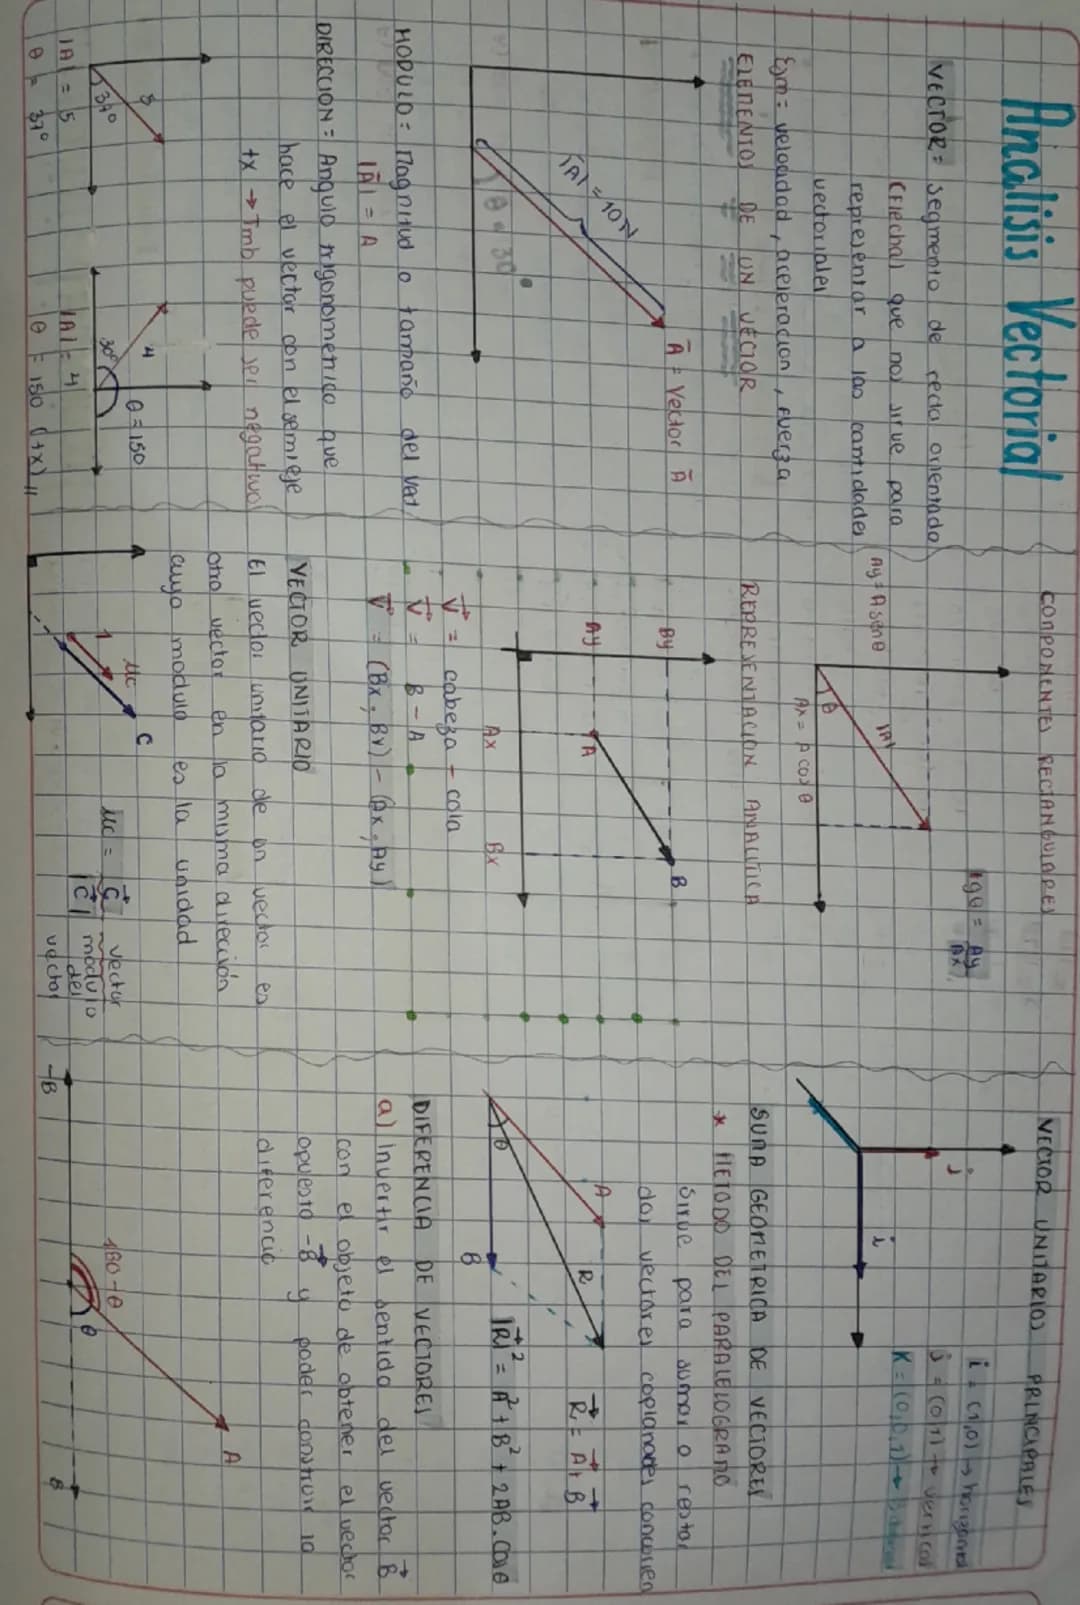 Analisis Vectorial
VECTOR = Segmento de recta orientado
(Flecha) que nos sirve para
representar a las cantidades
vectoriales
Ejm = velocidad, aceleracion, fuerza
ELEMENTOS DE UN VECTOR
Ā = Vector Ā
|A| = 10N
θ = 30°
MODULO = Magnitud o tamaño del vect.
|Ā| = A
DIRECCION = Angulo trigonometrico que
hace el vector con el semieje
+x → Tmb puede ser negativo
5
37°
|A| = 5
θ = 37°
4
30°
θ = 150
|A| = 4
θ = 150 (+x) //
COMPONENTES RECTANGULARES
tgθ = Ay/Ax
|A|
θ
Ay = A senθ
Ax = A cosθ
REPRESENTACION ANALITICA
By
Ay
A
B
Ax
Bx
V⃗ = cabeza - cola
V⃗ = B - A
V⃗ = (Bx, By) - (Ax, Ay)
VECTOR UNITARIO
El vector unitario de un vector es
otro vector en la misma dirección
cuyo modulo es la unidad
μc
1
C
μc = C⃗ / |C⃗|
vector
modulo
del
vector
VECTOR UNITARIOS PRINCIPALES
i = (1,0) → horizontal
j = (0,1) → vertical
K = (0,0,1) →
j
i
SUMA GEOMETRICA DE VECTORES
* METODO DEL PARALELOGRAMO
Sirve para sumar o restar
dos vectores coplanares
A
R
θ
B
R⃗ = A⃗ + B⃗
|R⃗|² = A² + B² + 2AB.Cosθ
DIFERENCIA DE VECTORES
a) Invertir el sentido del vector B⃗
con el objeto de obtener el vector
opuesto -B⃗ y poder construir la
diferencia
A
180-θ
θ
-B
B